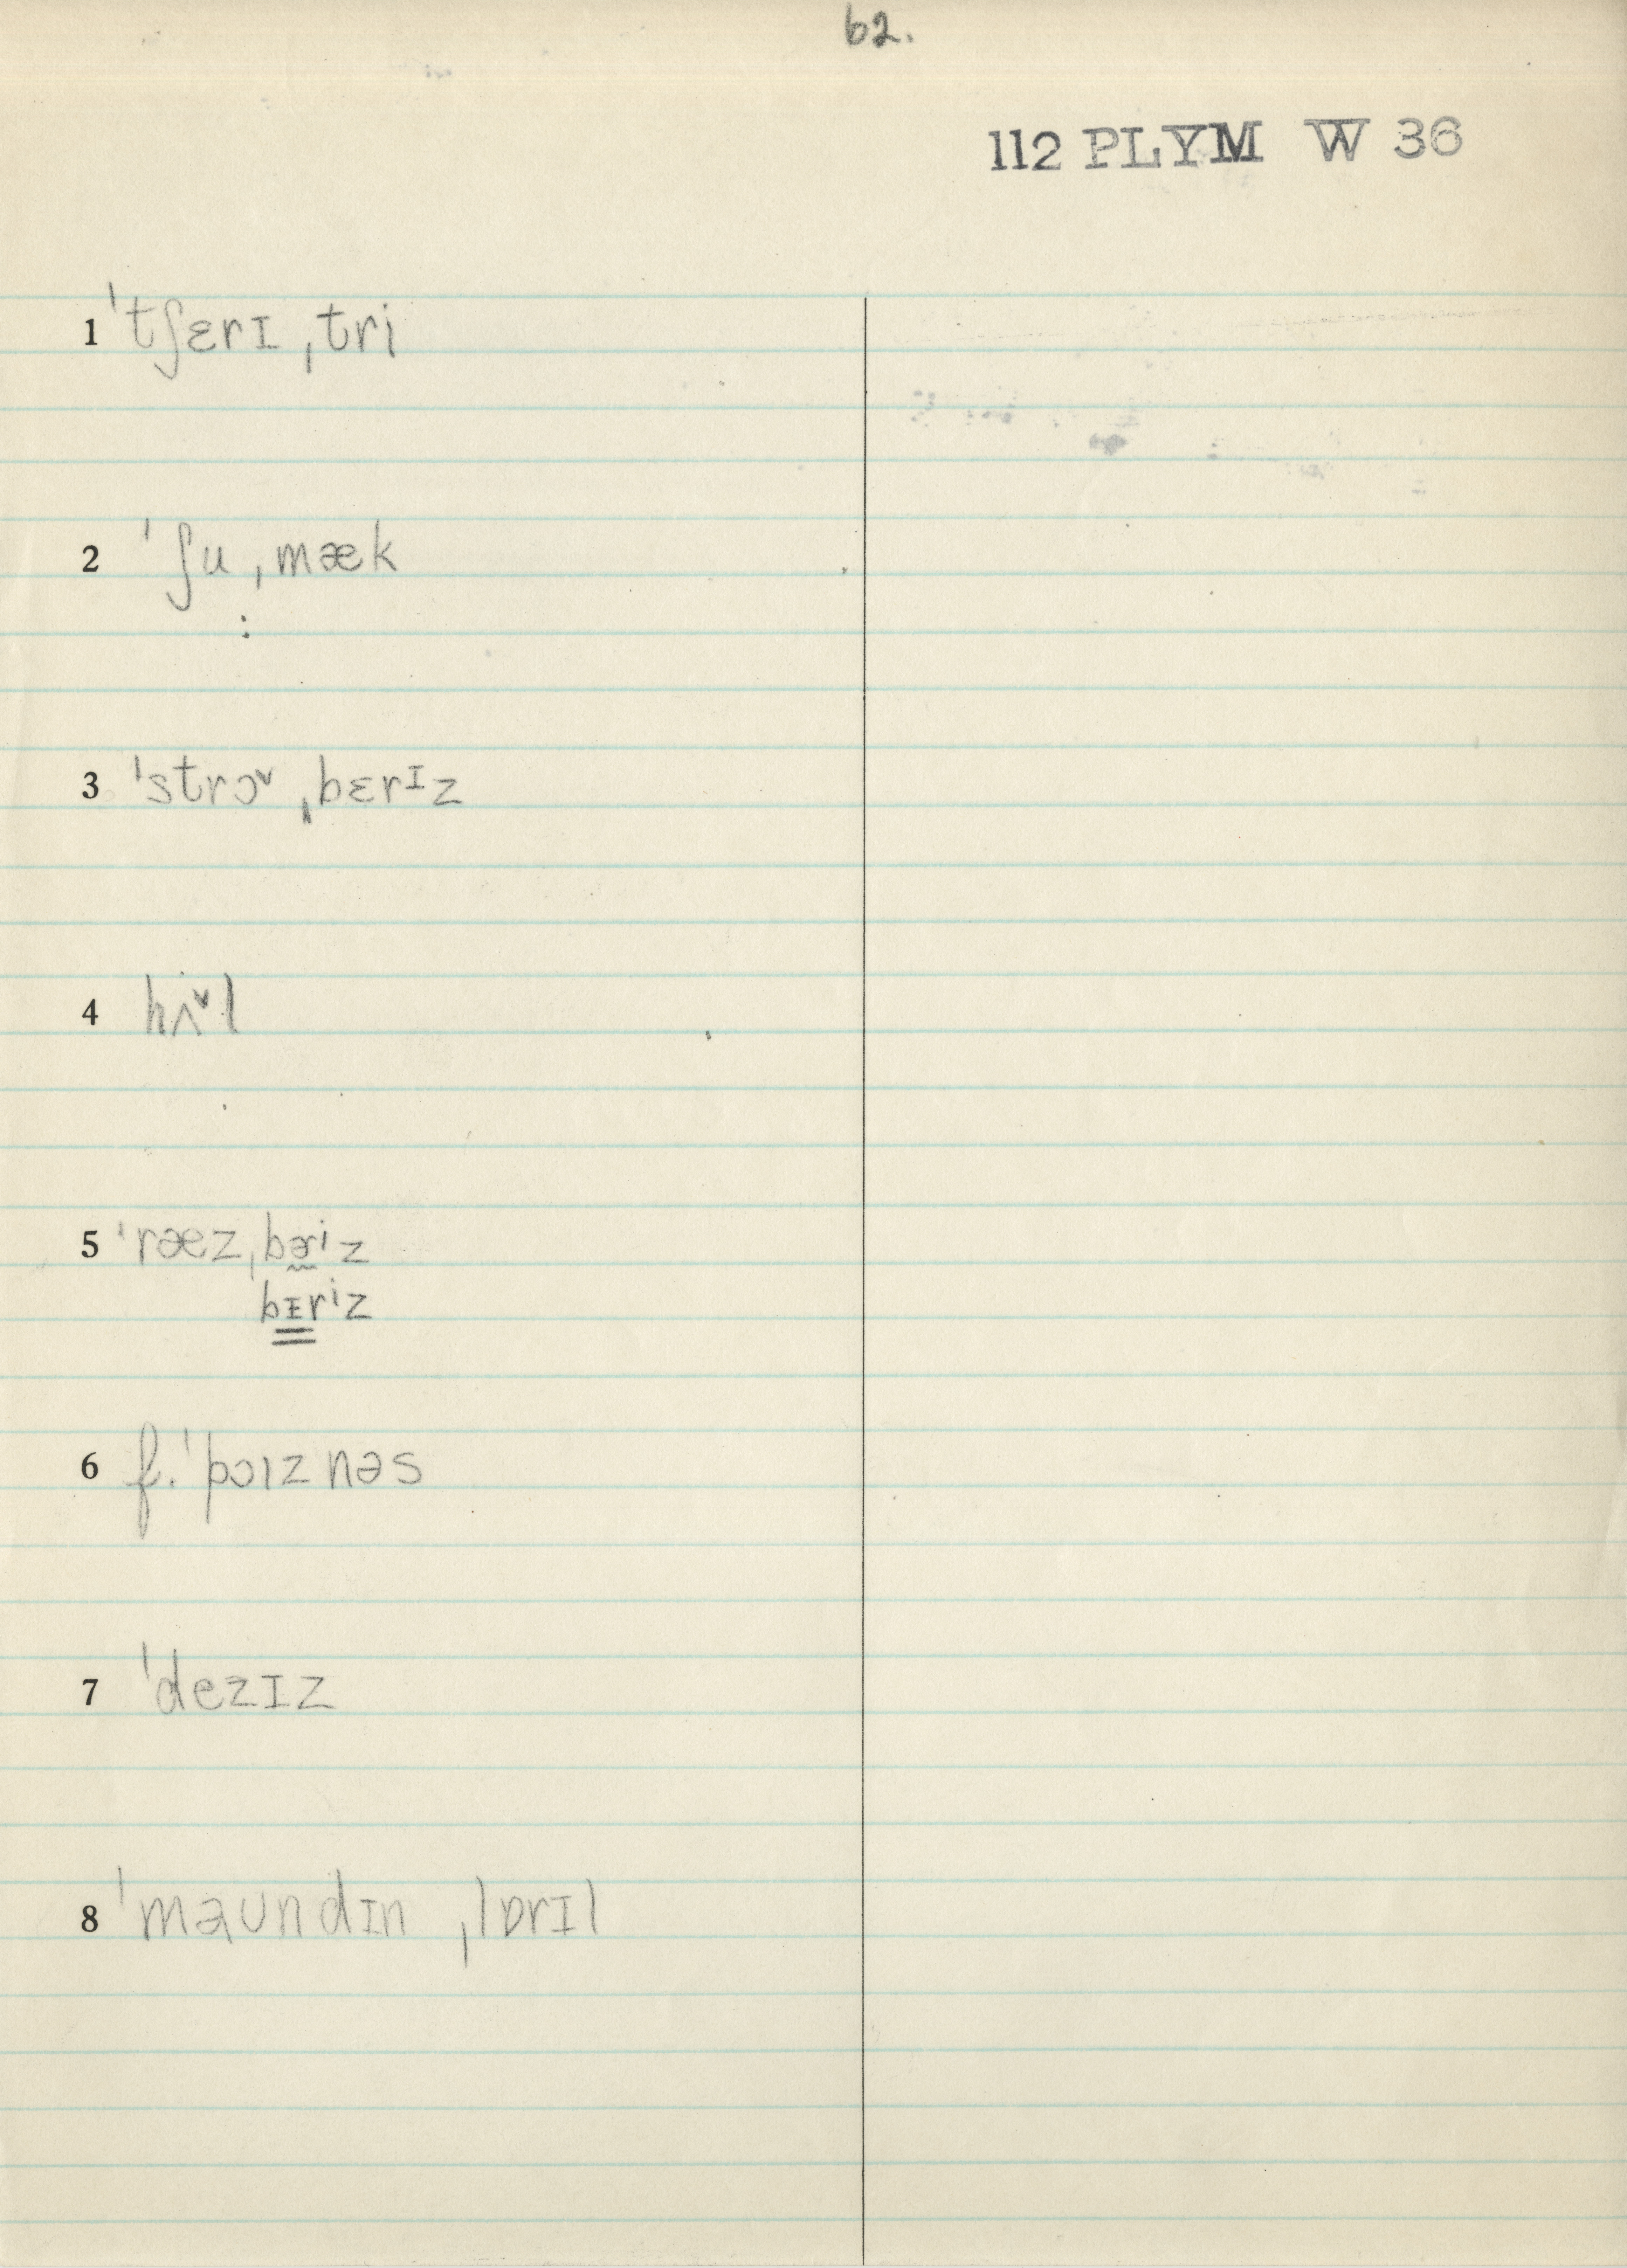 62.
112 PLYM W 36
1 ˈtʃɛrɪ ˌtri
2 ˈʃu ˌmæk
3 ˈstrɔ˅ ˌbɛrᶦz
4 hʌ˅l
5 ˈræez ˌbəriz
bɪriz
6 f. ˈpɔɪznəs
7 ˈdezɪz
8 ˈmaʊndɪn ˌlɒrɪl